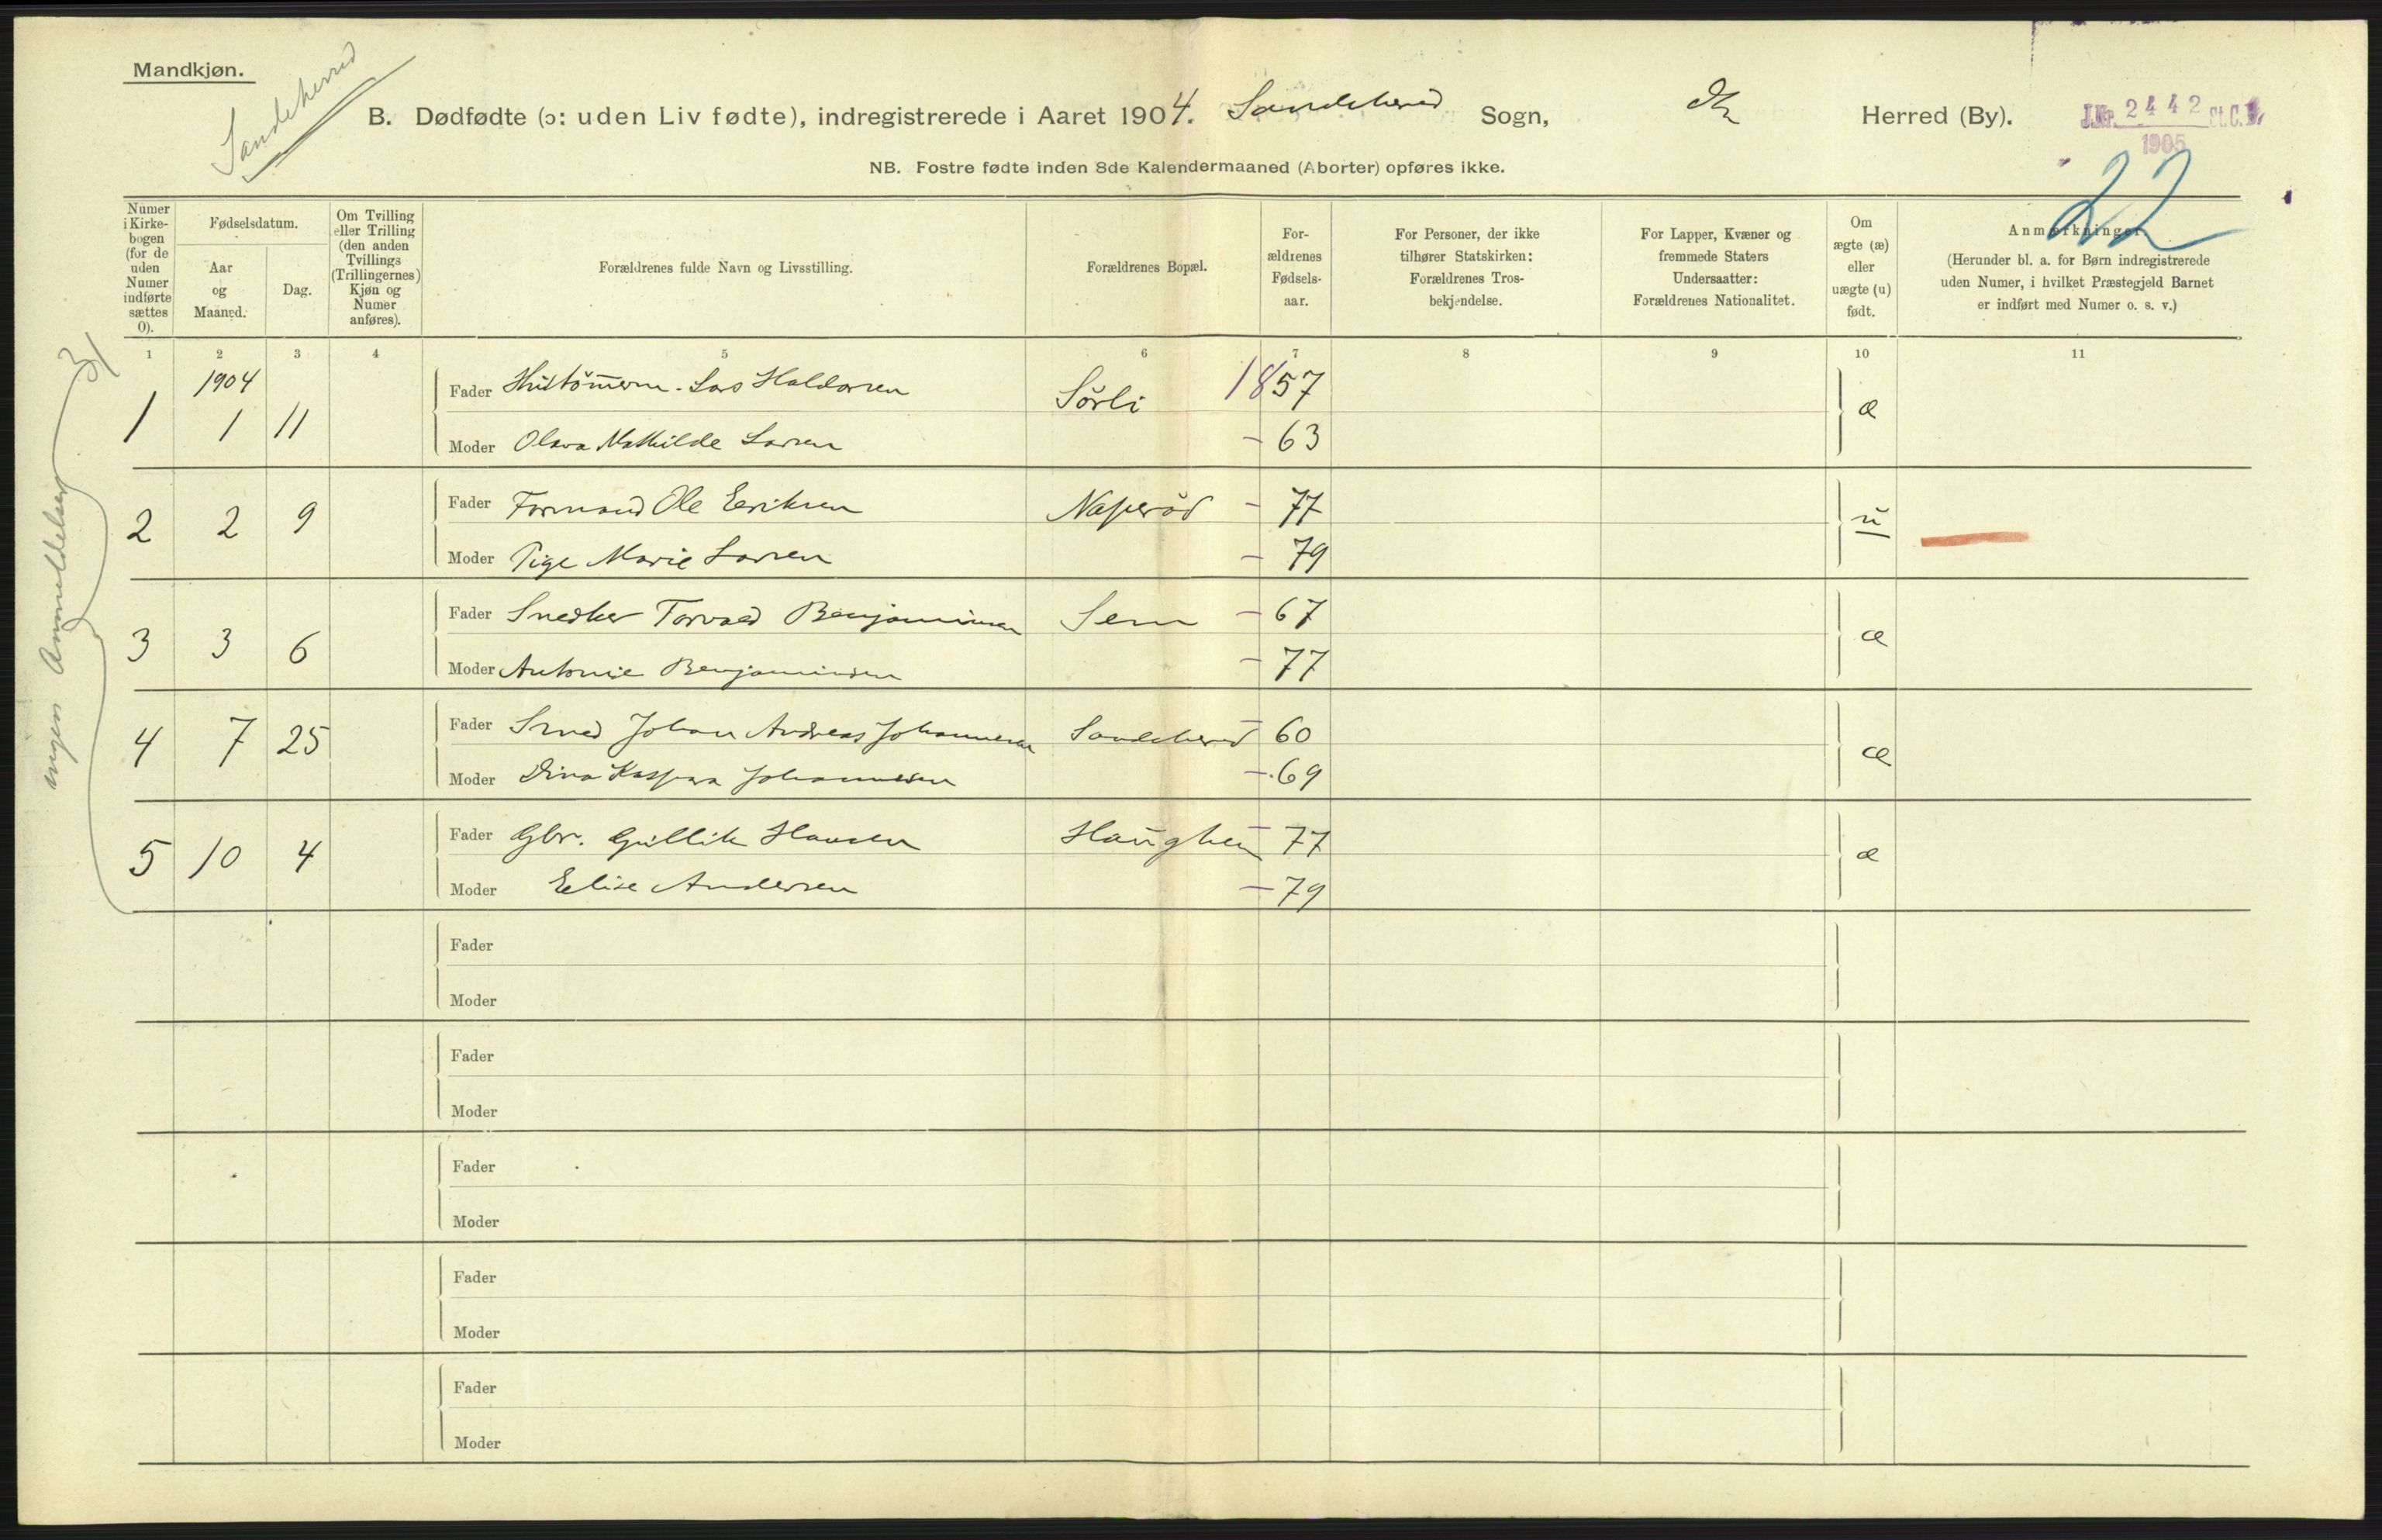 Mandkjøn.
Sandeherred
B. Dødfødte (ɔ: uden Liv fødte), indregistrerede i Aaret 1904. Sandeherred Sogn, Herred (By).
J.Nr. 2442 St.C.B.
1905
NB. Fostre fødte inden 8de Kalendermaaned (Aborter) opføres ikke.
22
Numer i Kirke-bogen (for de uden Numer indførte sættes 0).
Fødselsdatum.
Aar og Maaned.
Dag.
Om Tvilling eller Trilling (den anden Tvillings (Trillingernes) Kjøn og Numer anføres).
Forældrenes fulde Navn og Livsstilling.
Forældrenes Bopæl.
For-ældrenes Fødsels-aar.
For Personer, der ikke tilhører Statskirken: Forældrenes Tros-bekjendelse.
For Lapper, Kvæner og fremmede Staters Undersaatter: Forældrenes Nationalitet.
Om ægte (æ) eller uægte (u) født.
Anmærkninger.
(Herunder bl. a. for Børn indregistrerede uden Numer, i hvilket Præstegjeld Barnet er indført med Numer o. s. v.)
1 2 3 4 5 6 7 8 9 10 11
ingen Anmeldelser
1904
1 1 11 Fader Hustömerm. Lars Haldorsen Sörli 1857 æ
Moder Olava Mathilde Larsen - 63
2 2 9 Fader Formand Ole Eriksen Naperöd - 77 u
Moder Pige Marie Larsen - 79
3 3 6 Fader Snedker Torvald Benjaminsen Sem - 67 æ
Moder Antonie Benjaminsen - 77
4 7 25 Fader Smed Johan Andreas Johannesen Sandeherred - 60 æ
Moder Dina Kaspara Johannesen - 69
5 10 4 Fader Gbr. Gullik Hansen Haughem - 77 æ
Moder Elise Andersen - 79
Fader
Moder
Fader
Moder
Fader
Moder
Fader
Moder
Fader
Moder